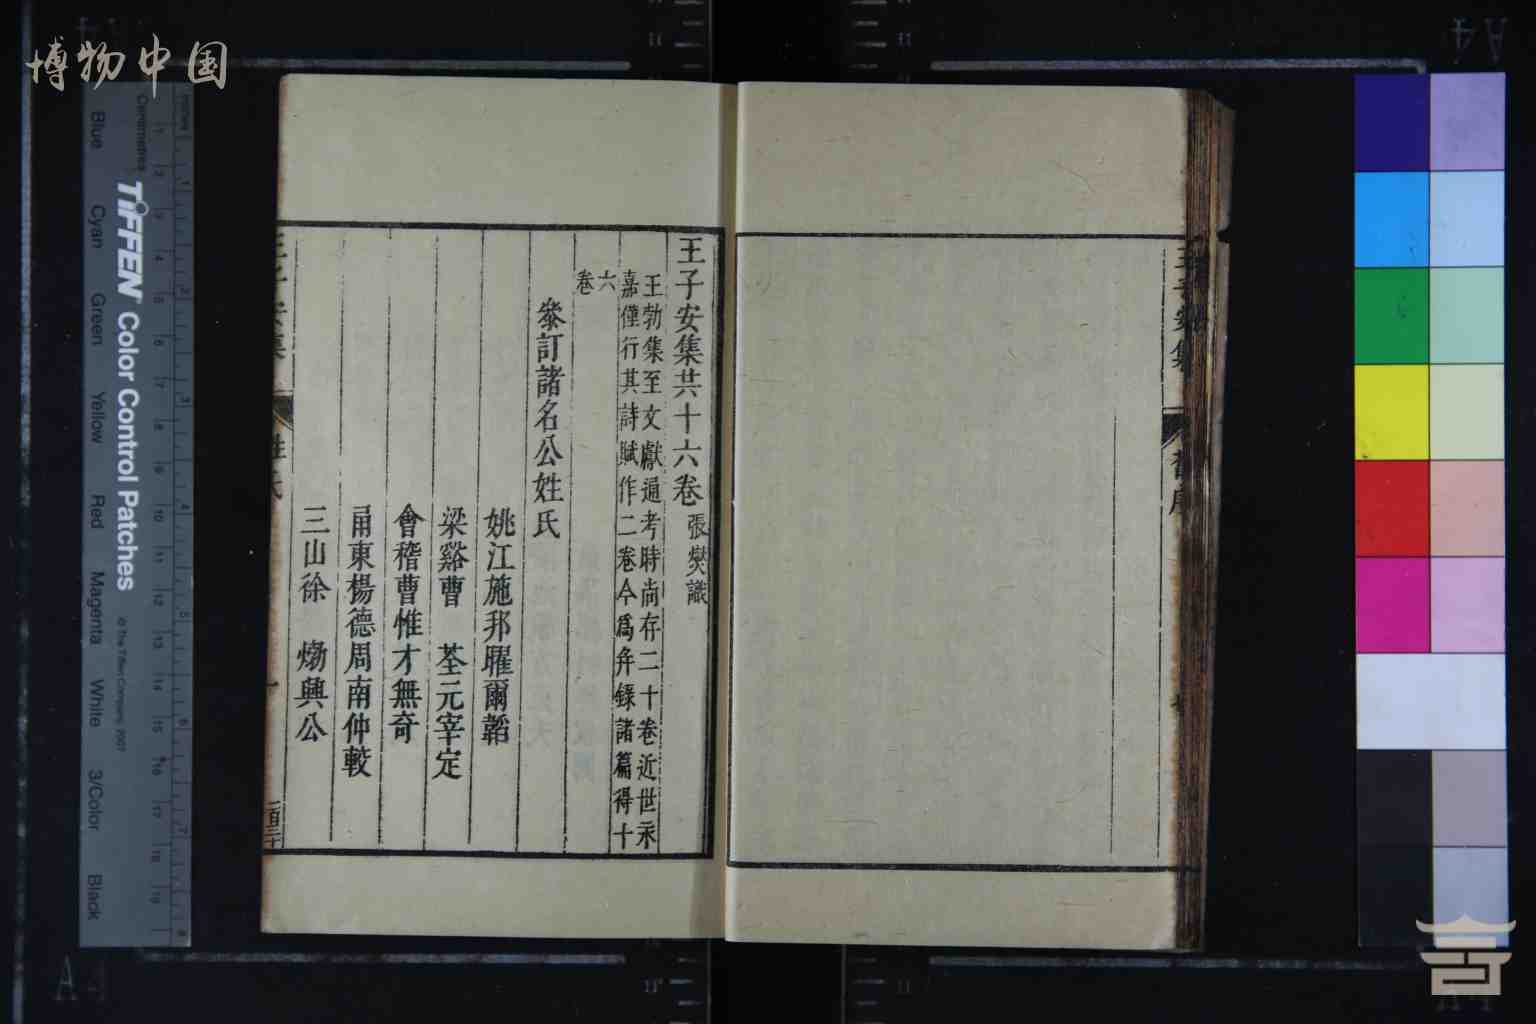 博物中国
王子安集共十六卷 張燮識
王勃集至文獻通考時尚存二十卷近世永
嘉僅行其詩賦作二卷今爲弁錄諸篇得十
六
卷
叅訂諸名公姓氏
姚江施邦曜爾韜
梁谿曹 荃元宰定
會稽曹惟才無奇
甬東楊德周南仲較
三山徐 㶿興公
王子安集
姓氏
一
王子安集
舊序
TIFFEN Color Control Patches
© The Tiffen Company, 2007
Blue Cyan Green Yellow Red Magenta White 3/Color Black
Centimetres
Inches
A4